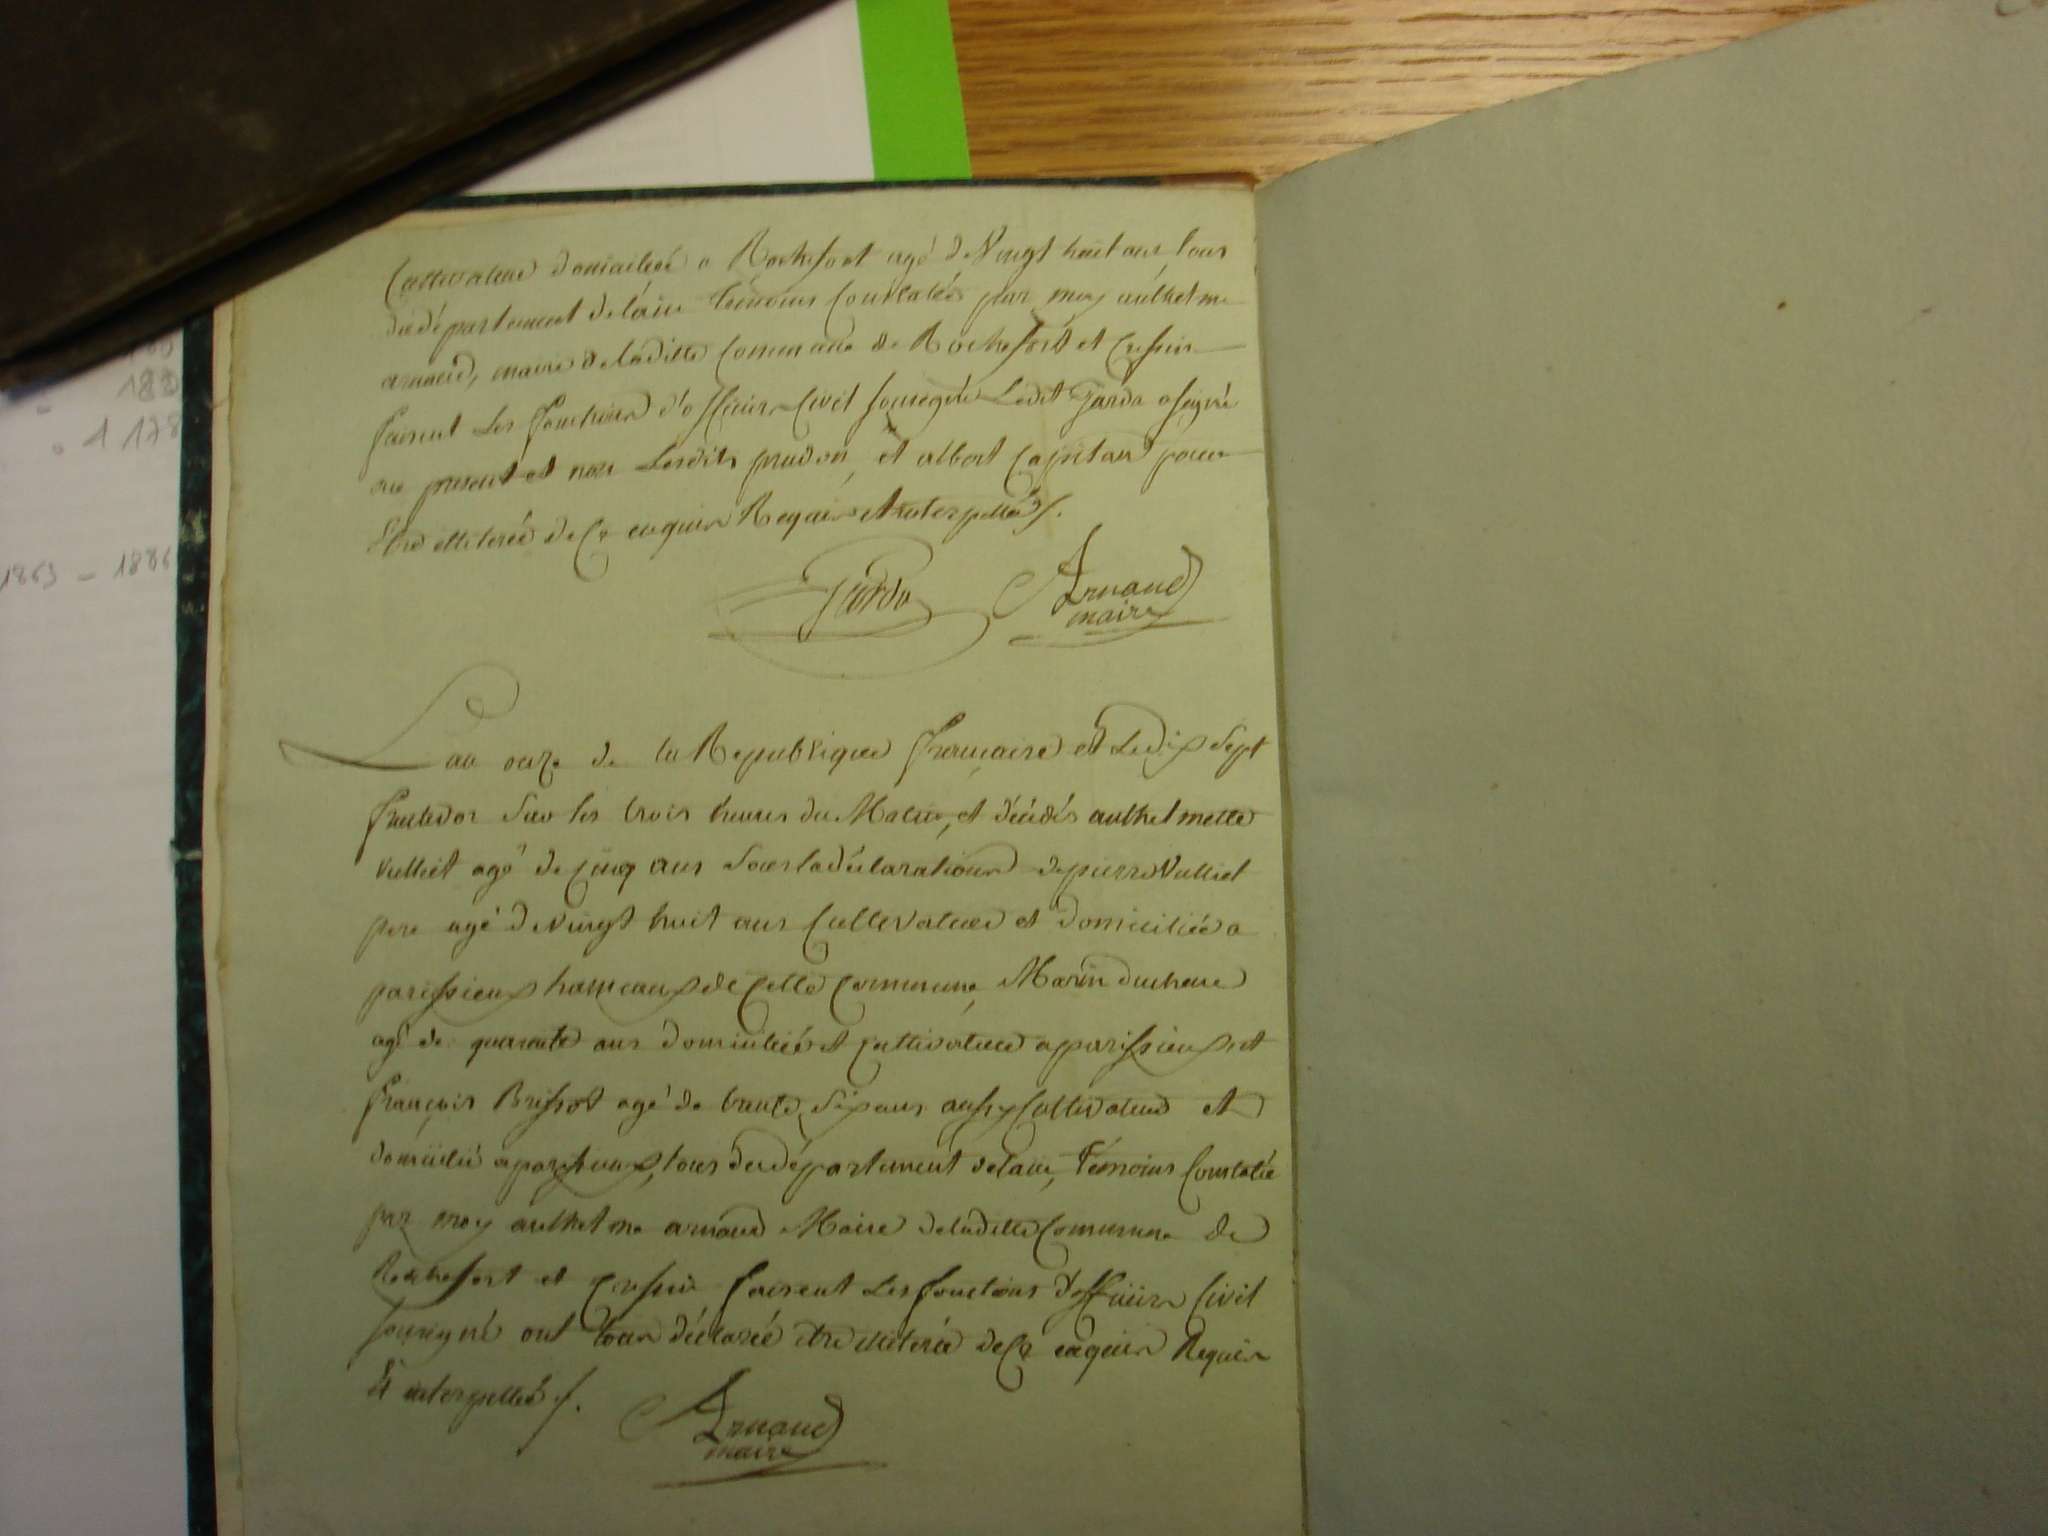 Cultivateur domicilié a Rochefort agé de Vingt huit ans, tous
du département de l'ain témoins Constatés par moy anthelme
arnaud, maire de laditte Commune de Rochefort et Cressin
faisent Les fonctions d'officier Civil sousigné Ledit Jarda a signé
au present et non Lesdits prudon, et albert Capitan pour
Etre illiterée de Ce enquis Requis et interpellés /.
Jarda Arnaud
maire
L'an onze de la Republique française et Le dix Sept
fructidor Sur les trois heures du Matin, et décédés anthelmette
Vulliet agé de Cinq ans Sous la déclaration de pierre Vulliet
pere agé de Vingt huit ans Cultivateur et domiciliée a
parissieux hameaux de Cette Commune, Marin
agé de quarante ans domiciliée et Cultivateur a parissieux, et
françois Brissot agé de trente Six ans aussy Cultivateur et
domicilié a parissieux, tous du département de l'ain, Témoins Constatée
par moy anthelme arnaud Maire de laditte Commune de
Rochefort et Cressin faisent Les fonctions d'officier Civil
sousigné ont tous déclarée etre illiterée de Ce enquis Requis
Et interpellés /.
Arnaud
maire
188
1178
1863 - 1886